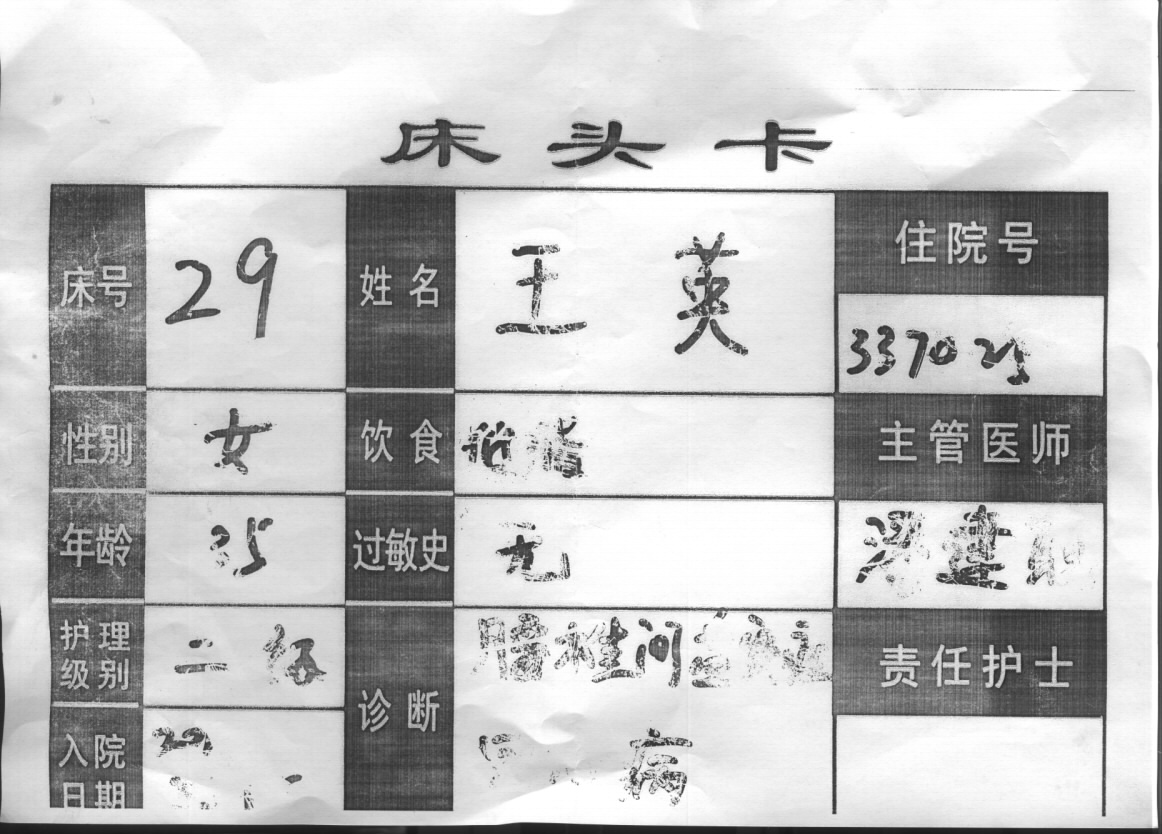 床头卡
床号 29 姓名 王英 住院号
337025
性别 女 饮食 主管医师
年龄 35 过敏史 无 梁建
护理级别 二级 诊断 腰椎间盘 责任护士
入院日期 病